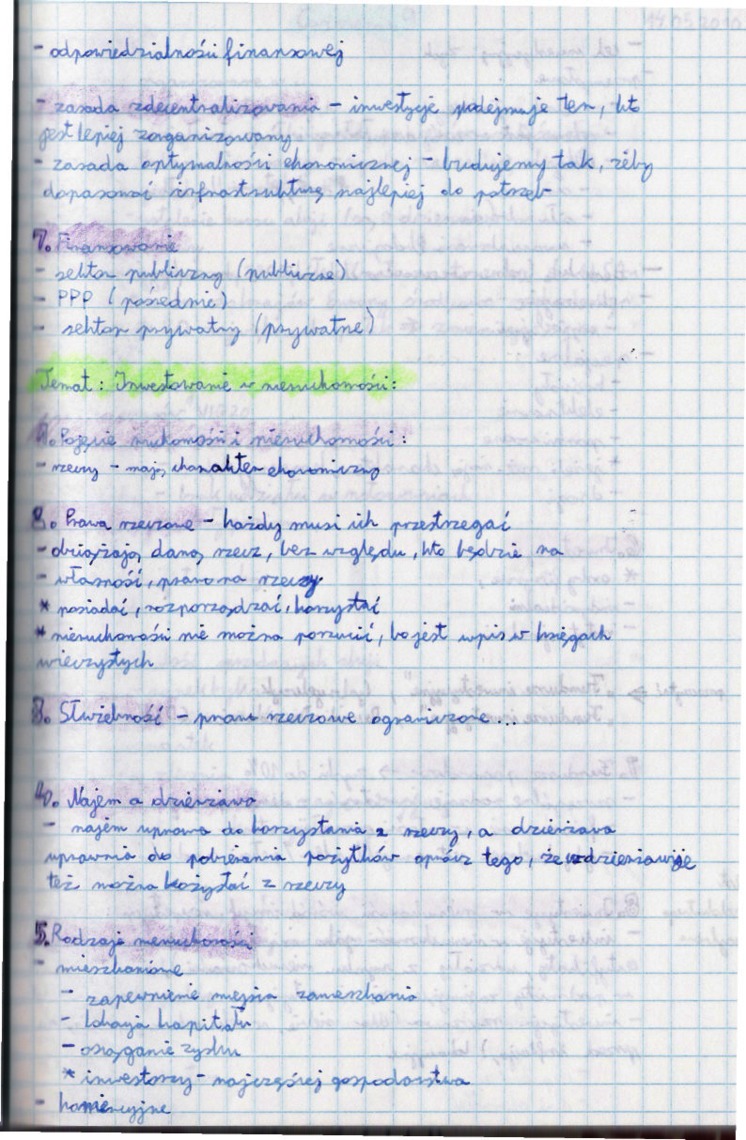 - odpowiedzialności finansowej
- zasada zdecentralizowania - inwestycje podejmuje ten, kto
jest lepiej zorganizowany
- zasada optymalności ekonomicznej - budujemy tak, żeby
dopasować infrastrukturę najlepiej do potrzeb
7. Finansowanie
- sektor publiczny (publiczne)
- PPP (pośrednie)
- sektor prywatny (prywatne)
Temat: Inwestowanie w nieruchomości:
1. Pojęcie ruchomości i nieruchomości:
- rzeczy - mają charakter ekonomiczny
2. Prawa rzeczowe - każdy musi ich przestrzegać
- obciążają daną rzecz, bez względu, kto będzie na
- własność, prawo na rzeczy
* posiadać, rozporządzać, korzystać
* nieruchomości nie można porzucić, bo jest wpis w księgach
wieczystych
3. Służebność - prawa rzeczowe ograniczone...
4. Najem a dzierżawa
- najem uprawa do korzystania z rzeczy, a dzierżawa
uprawnia do pobierania pożytków oprócz tego, że wdzierżawije
też można kożystać z rzeczy
5. Rodzaje nieruchomości
- mieszkaniowe
- zapewnienie miejsca zamieszkania
- lokacja kapitału
- osiąganie zysku
* inwestorzy - najczęściej gospodarstwa
- komercyjne